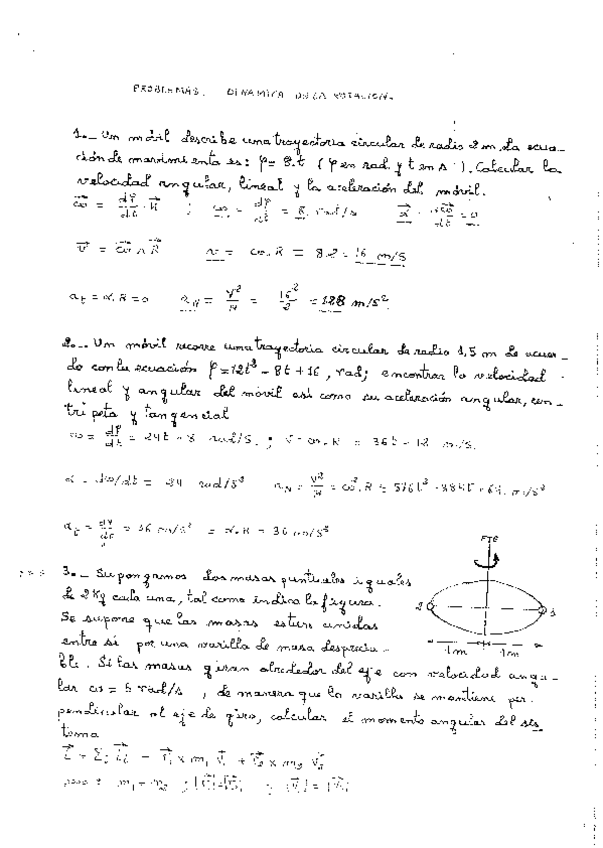 PROBLEMAS. DINAMICA DE LA ROTACION.
1._ Un móvil describe una trayectoria circular de radio 2 m. La ecua-
ción de movimiento es: φ= 8.t (φ en rad. y t en s). Calcular la
velocidad angular, lineal y la aceleración del móvil.
ω = dφ/dt . K ; ω = dφ/dt = 8 rad/s α = dω/dt = 0
v = ω ∧ R v = ω.R = 8.2 = 16 m/s
a_t = α.R = 0 a_N = v²/R = 16²/2 = 128 m/s²
2._. Un móvil recorre una trayectoria circular de radio 1,5 m de acuer_
do con la ecuación φ=12t² - 8t + 16, rad; encontrar la velocidad
lineal y angular del móvil así como su aceleración angular, cen_
tripeta y tangencial
ω = dφ/dt = 24t - 8 rad/s. ; v = ω.R = 36t - 12 m/s.
α = dω/dt = 24 rad/s² a_N = v²/R = ω².R =
a_t = dv/dt = 36 m/s² = α.R = 36 m/s²
EJE
3._ Supongamos dos masas puntuales iguales
de 2 Kg cada una, tal como indica la figura.
2 1
Se supone que las masas estan unidas
entre sí por una varilla de masa desprecia-
1m 1m
ble. Si las masas giran alrededor del eje con velocidad angu-
lar ω = 5 rad/s, de manera que la varilla se mantiene per_
pendicular al eje de giro, calcular el momento angular del sis_
tema
L = Σ Li = r₁ x m₁ v₁ + r₂ x m₂ v₂